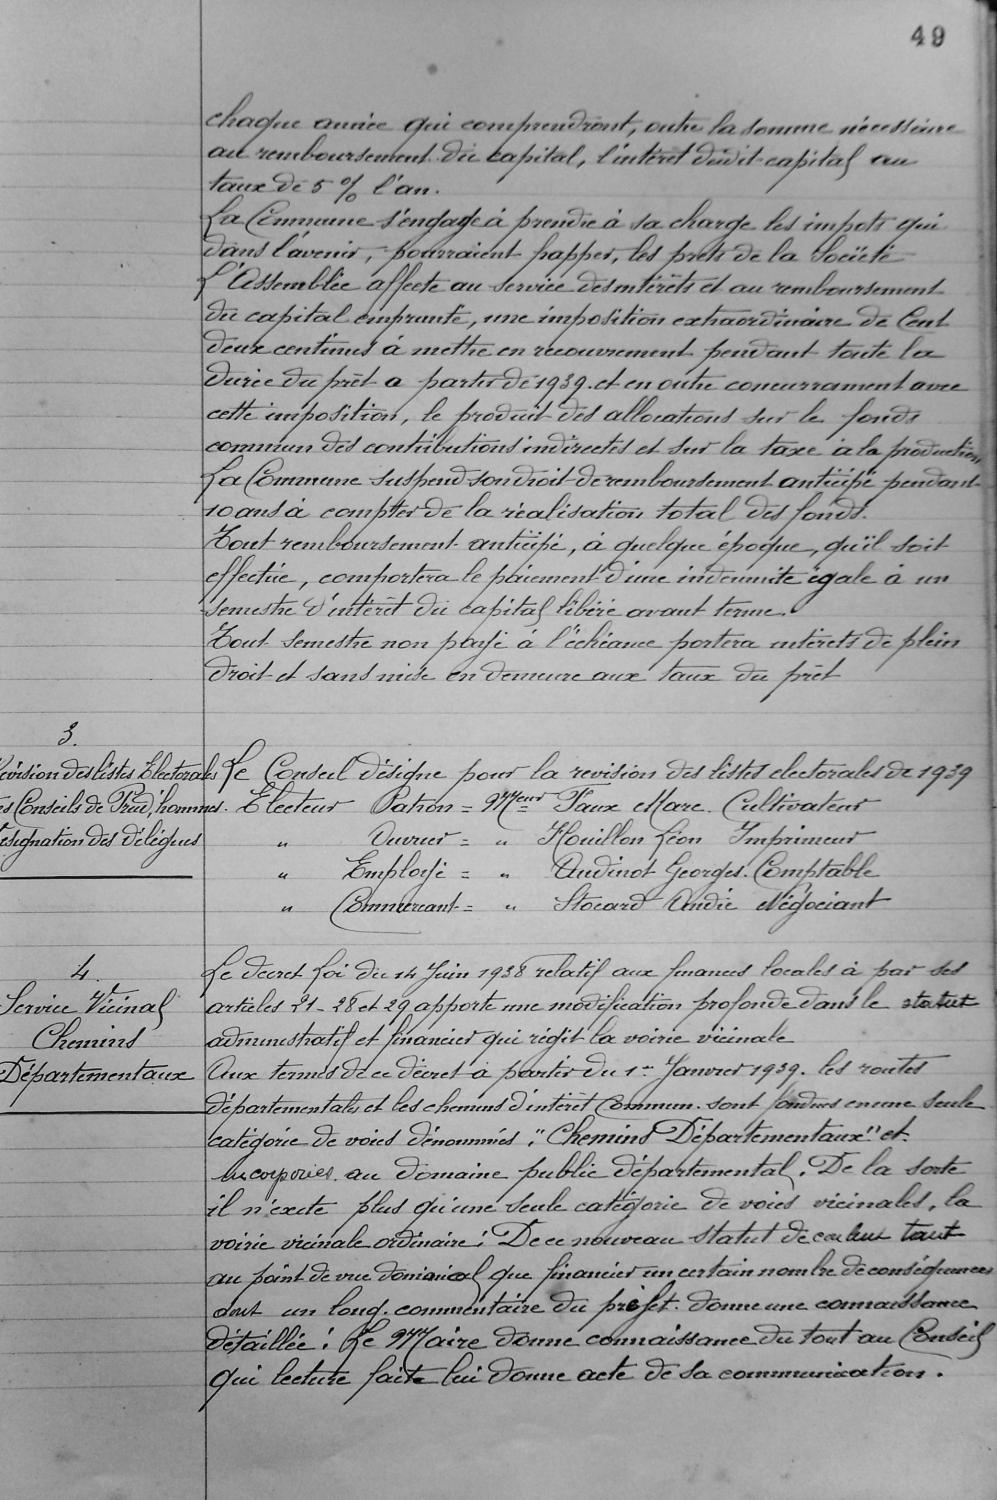 49
chaque année qui comprendront, outre la somme nécessaire
au remboursement du capital, l'intérêt dudit capital au
taux de 5 % l'an.
La Commune s'engage à prendre à sa charge les impots qui
dans l'avenir, pourraient frapper, les prêts de la Société
L'Assemblée affecte au service des intérêts et au remboursement
du capital emprunté, une imposition extraordinaire de Cent
deux centimes à mettre en recouvrement pendant toute la
durée du prêt a partir de 1939. et en outre concurrament avec
cette imposition, le produit des allocations sur le fonds
commun des contributions indirectes et sur la taxe à la production
La Commune suspend son droit de remboursement anticipé pendant
10 ans à compter de la réalisation total des fonds.
Tout remboursement anticipé, à quelque époque, qu'il soit
effectué, comportera le paiement d'une indemnité égale à un
semestre d'intérêt du capital libéré avant terme.
Tout semestre non payé à l'échéance portera intérêts de plein
droit et sans mise en demeure aux taux du prêt
3.
Révision des listes Electorales
des Conseils de Prud'hommes.
Désignation des délégués
Le Conseil désigne pour la revision des listes electorales de 1939
Electeur Patron = Mr Faux Marc. Cultivateur
" Ouvrier = " Houillon Léon Imprimeur
" Employé = " Audinot Georges. Comptable
" Commercant = " Stocard André Négociant
4.
Service Vicinal
Chemins
Départementaux
Le decret Loi du 14 Juin 1938 relatif aux finances locales à par ses
articles 21 - 28 et 29 apporte une modification profonde dans le statut
administratif et financier qui régit la voirie vicinale
Aux termes de ce décret à partir du 1er Janvier 1939. les routes
départementales et les chemins d'intérêt Commun. sont fondues en une seule
catégorie de voies dénommés : "Chemins Départementaux" et
incorporés au domaine public départemental. De la sorte
il n'exite plus qu'une seule catégorie de voies vicinales, la
voirie vicinale ordinaire : De ce nouveau statut découlent tant
au point de vue domanial que financier un certain nombre de conséquences
dont un long. commentaire du préfet. donne une connaissance
détaillée : Le Maire donne connaissance du tout au Conseil
qui lecture faite lui donne acte de sa communication.